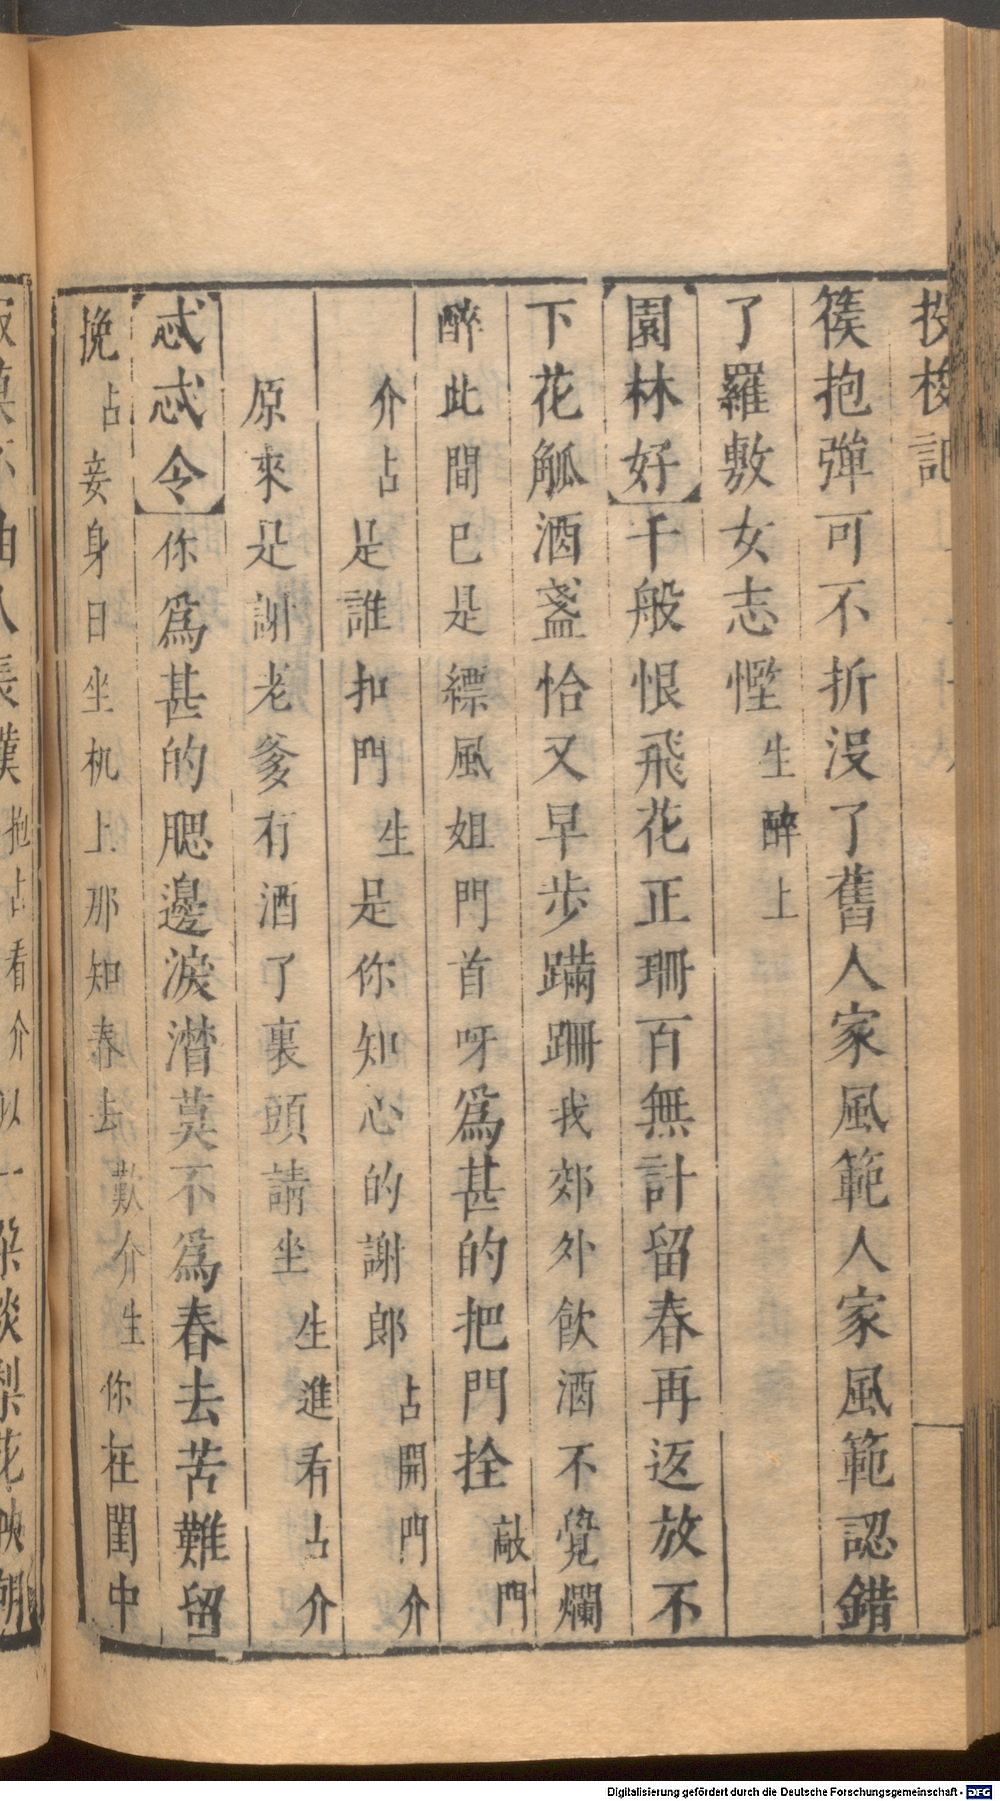 投梭記
篌抱彈可不折没了舊人家風範人家風範認錯
了羅敷女志慳生醉上
園林好千般恨飛花正珊百無計留春再返放不
下花觚酒盞恰又早步蹣跚我郊外飲酒不覺爛
醉此間已是縹風姐門首呀爲甚的把門拴敲門
介占是誰扣門生是你知心的謝郎占開門介
原來是謝老爹有酒了裏頭請坐生進看占介
忒忒令你爲甚的腮邊淚潸莫不爲春去苦難留
挽占妾身日坐机上那知春去歎介生你在閨中
抱占看介似一朶淡梨花映朝
Digitalisierung gefördert durch die Deutsche Forschungsgemeinschaft - DFG